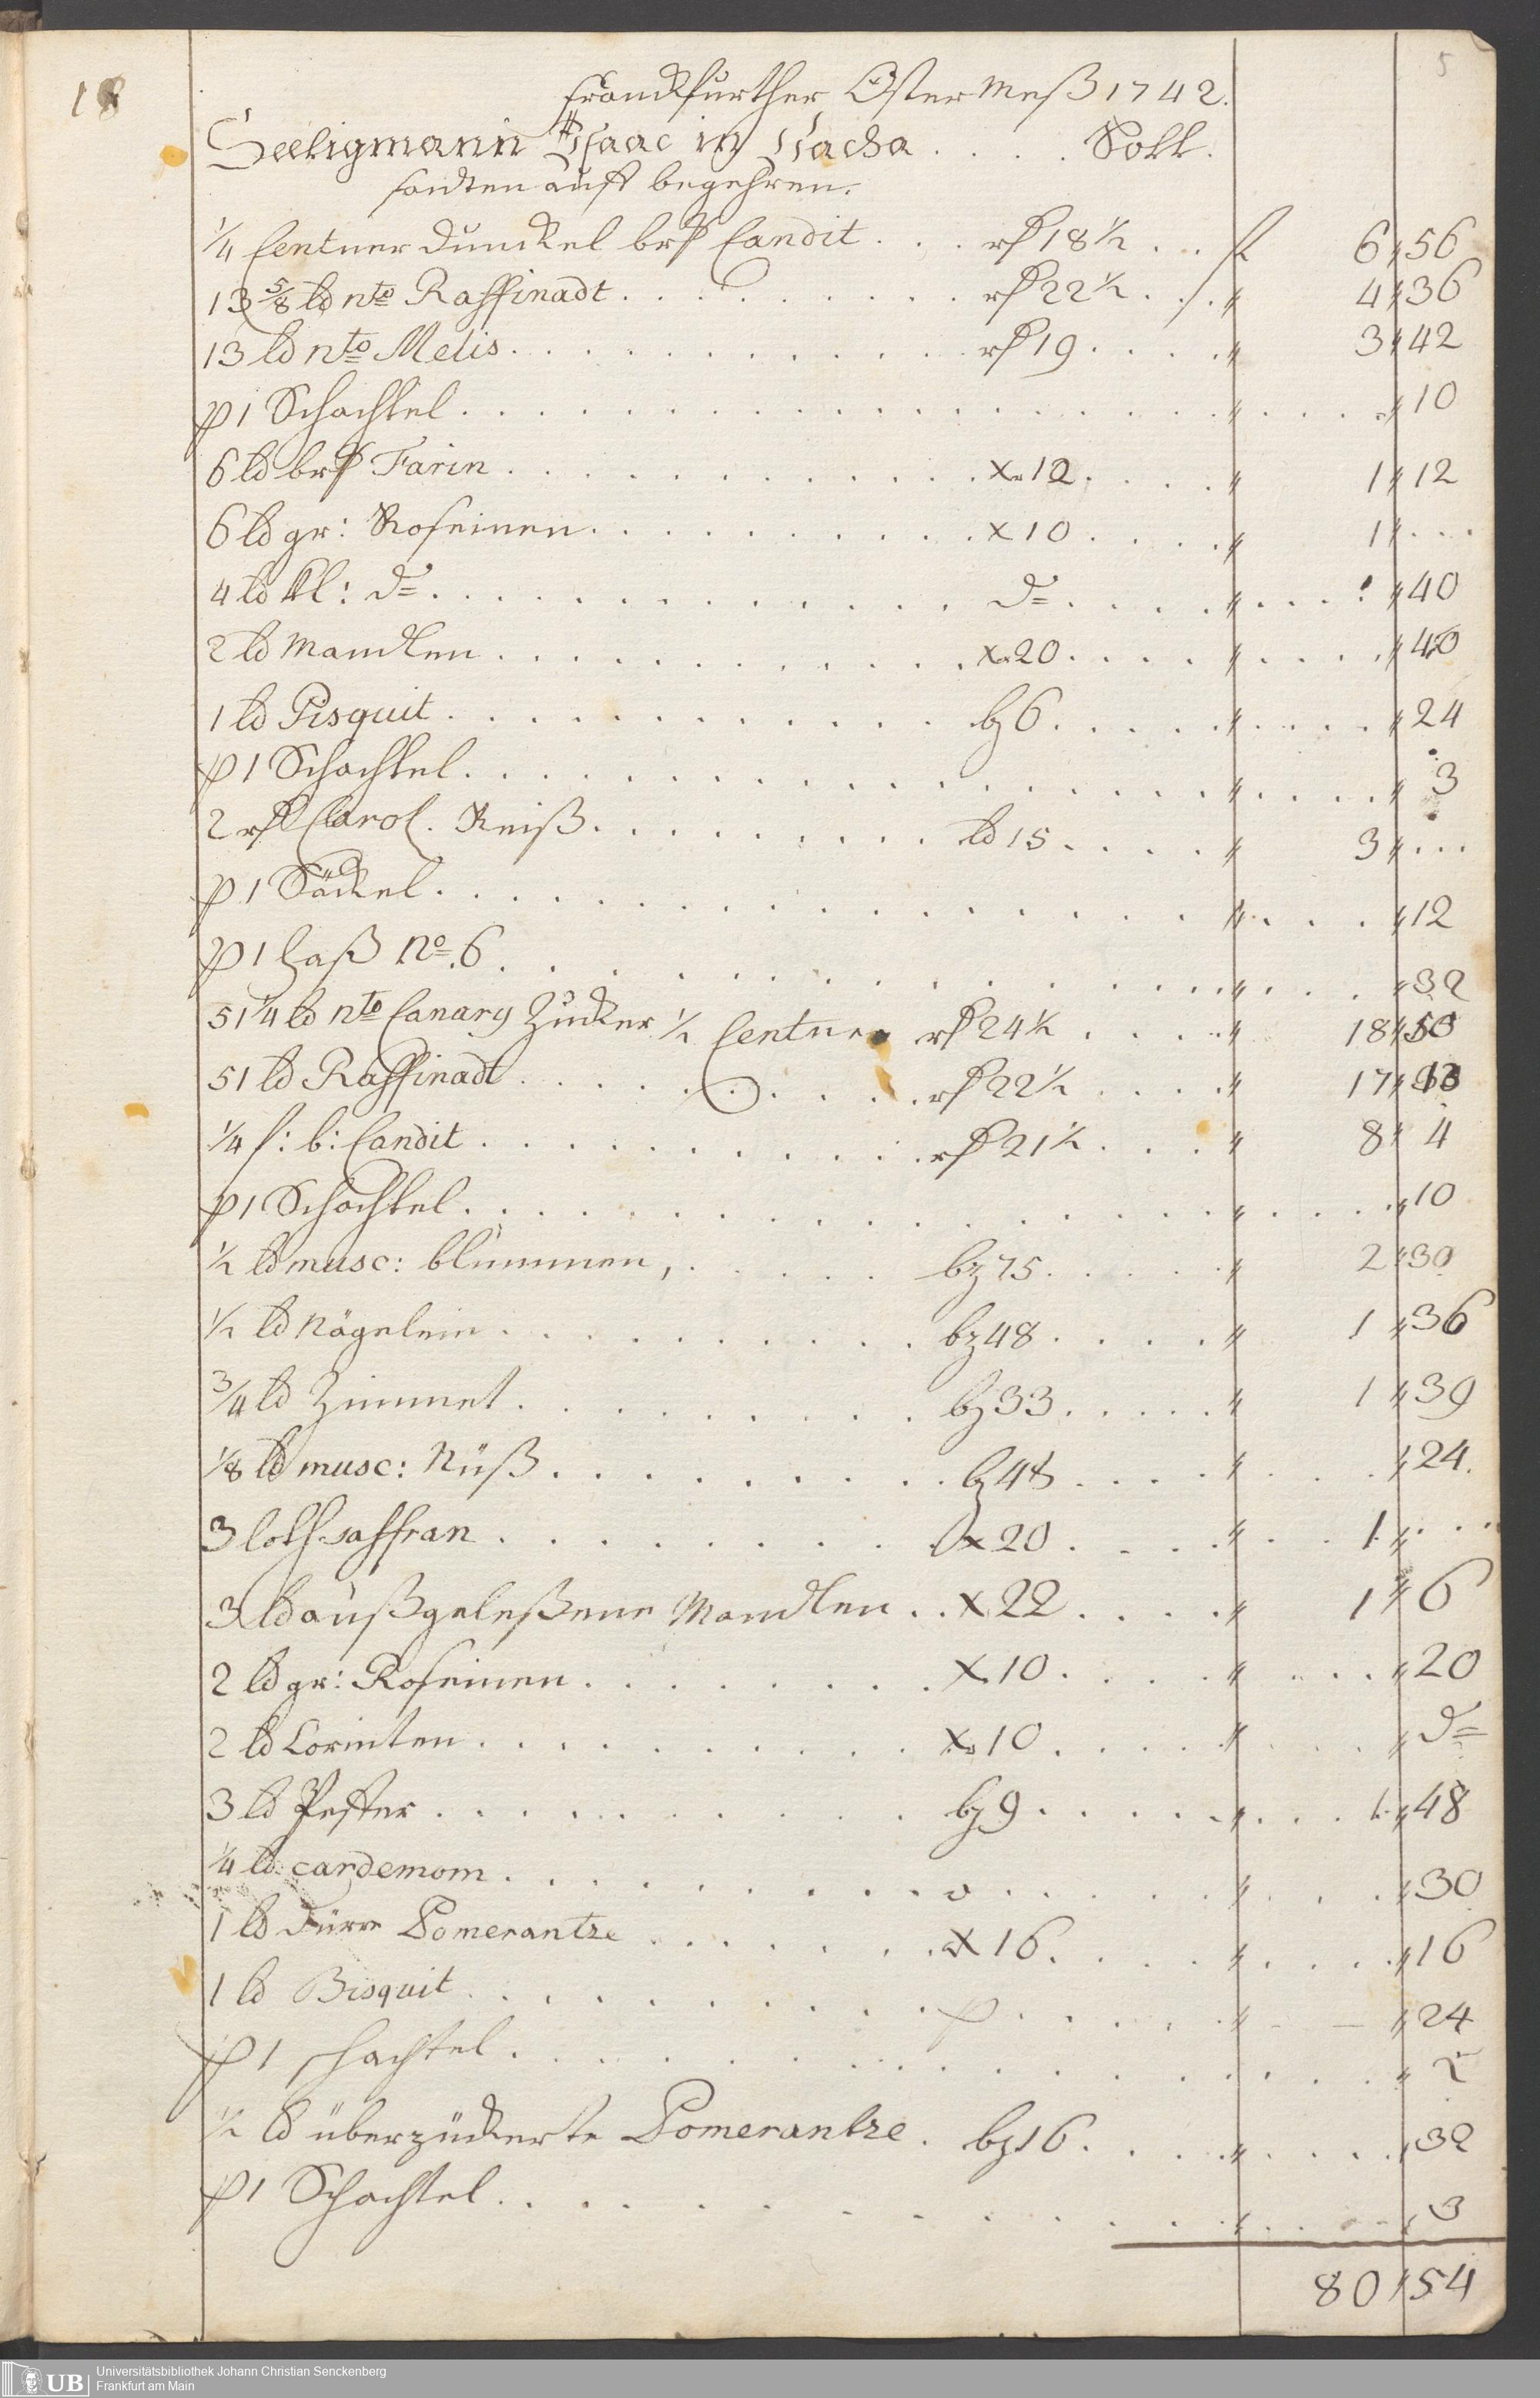 5
18
Franckfurther Oster Meß 1742.
Seeligmann Isaac in Vacha . . . . Soll.
sandten auff begehren.
¼ Centner dunckel brß Candit . . . rß 18½ . . fl 6 56
13 5/8 lb nto Raffinadt . . . . . . . . . rß 22½ . . " 4 " 36
13 lb nto Melis . . . . . . . . . . . rß 19 . . . . " 3 " 42
p 1 Schachtel . . . . . . . . . . . . . . . . " . . . " 10
6 lb brß Farin . . . . . . . . . . . . x 12 . . . . " 1 " 12
6 lb gr: Roseinen . . . . . . . . . . x 10 . . . . " 1 " . . .
4 lb kl: do . . . . . . . . . . . . . do . . . . " . . . " 40
2 lb Mandlen . . . . . . . . . . . . x 20 . . . . " . . . " 40
1 lb Pisquit . . . . . . . . . . . . bz 6 . . . . " . . . " 24
p 1 Schachtel . . . . . . . . . . . . . . . . " . . . " 3
2 rß Carol. Reiß . . . . . . . . . lb 15 . . . . " 3 " . . .
p 1 Säckel . . . . . . . . . . . . . . . . " . . . " 12
p 1 Faß No. 6 . . . . . . . . . . . . . . . " . . . " 32
51¼ lb nto Canary Zucker ½ Centner rß 24½ . . . . " 18 " 50
51 lb Raffinadt . . . . . . . . . rß 22½ . . . . " 17 "
¼ f: b: Candit . . . . . . . . . . . rß 21½ . . . . " 8 " 4
p 1 Schachtel . . . . . . . . . . . . . . . . " . . . " 10
½ lb musc: blummen, . . . . . bz 75 . . . . " 2 " 30
½ lb Nägelein . . . . . . . . . bz 48 . . . . " 1 " 36
¾ lb Zimmet . . . . . . . . . bz 33 . . . . " 1 " 39
1/8 lb musc: Nüß . . . . . . . . . bz 48 . . . . " . . . " 24.
3 loth saffran . . . . . . . . . x 20 . . . . " . . 1 " . . .
3 lb außgeleßene Mandlen . . x 22 . . . . " 1 " 6
2 lb gr: Roseinen . . . . . . . . x 10 . . . . " . . . " 20
2 lb Corinten . . . . . . . . . . x 10 . . . . " . . . " do
3 lb Peffer . . . . . . . . . . bz 9 . . . . " . . 1 " 48
¼ lb cardemom . . . . . . . . . . . . . . " . . . " 30
1 lb dürre Pomerantze . . . . . . . x 16 . . . . " . . . " 16
1 lb Bisquit . . . . . . . . . . p . . . . " . . . " 24
p 1 schachtel . . . . . . . . . . . . . . . . . . " 2
½ lb überzückerte Pomerantze . bz 16 . . . . " . . . " 32
p 1 Schachtel . . . . . . . . . . . . . . . " . . . " 3
80 " 54
UB Universitätsbibliothek Johann Christian Senckenberg
Frankfurt am Main